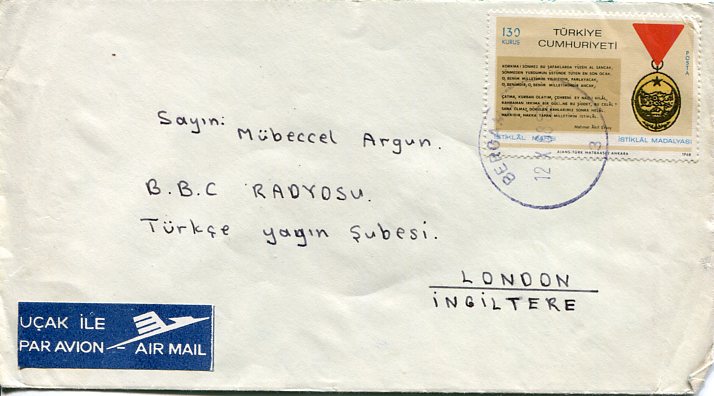 130
KURUŞ
TÜRKİYE
CUMHURİYETİ
POSTA
KORKMA! SÖNMEZ BU ŞAFAKLARDA YÜZEN AL SANCAK,
SÖNMEDEN YURDUMUN ÜSTÜNDE TÜTEN EN SON OCAK.
O, BENİM MİLLETİMİN YILDIZIDIR, PARLAYACAK,
O, BENİMDİR, O, BENİM MİLLETİMİNDİR ANCAK.
ÇATMA, KURBAN OLAYIM, ÇEHRENİ EY NAZLI HİLÂL,
KAHRAMAN IRKIMA BİR GÜL... NE BU ŞİDDET, BU CELÂL?
SANA OLMAZ DÖKÜLEN KANLARIMIZ SONRA HELÂL,
HAKKIDIR, HAKKA TAPAN MİLLETİMİN İSTİKLÂL.
Mehmet Âkif Ersoy
İSTİKLÂL MARŞI
İSTİKLÂL MADALYASI
AJANS-TÜRK MATBAASI ANKARA
1968
12 X
3
Sayın: Mübeccel Argun.
B.B.C RADYOSU.
Türkçe yayın Şubesi.
LONDON
İNGİLTERE
UÇAK İLE
PAR AVION - AIR MAIL